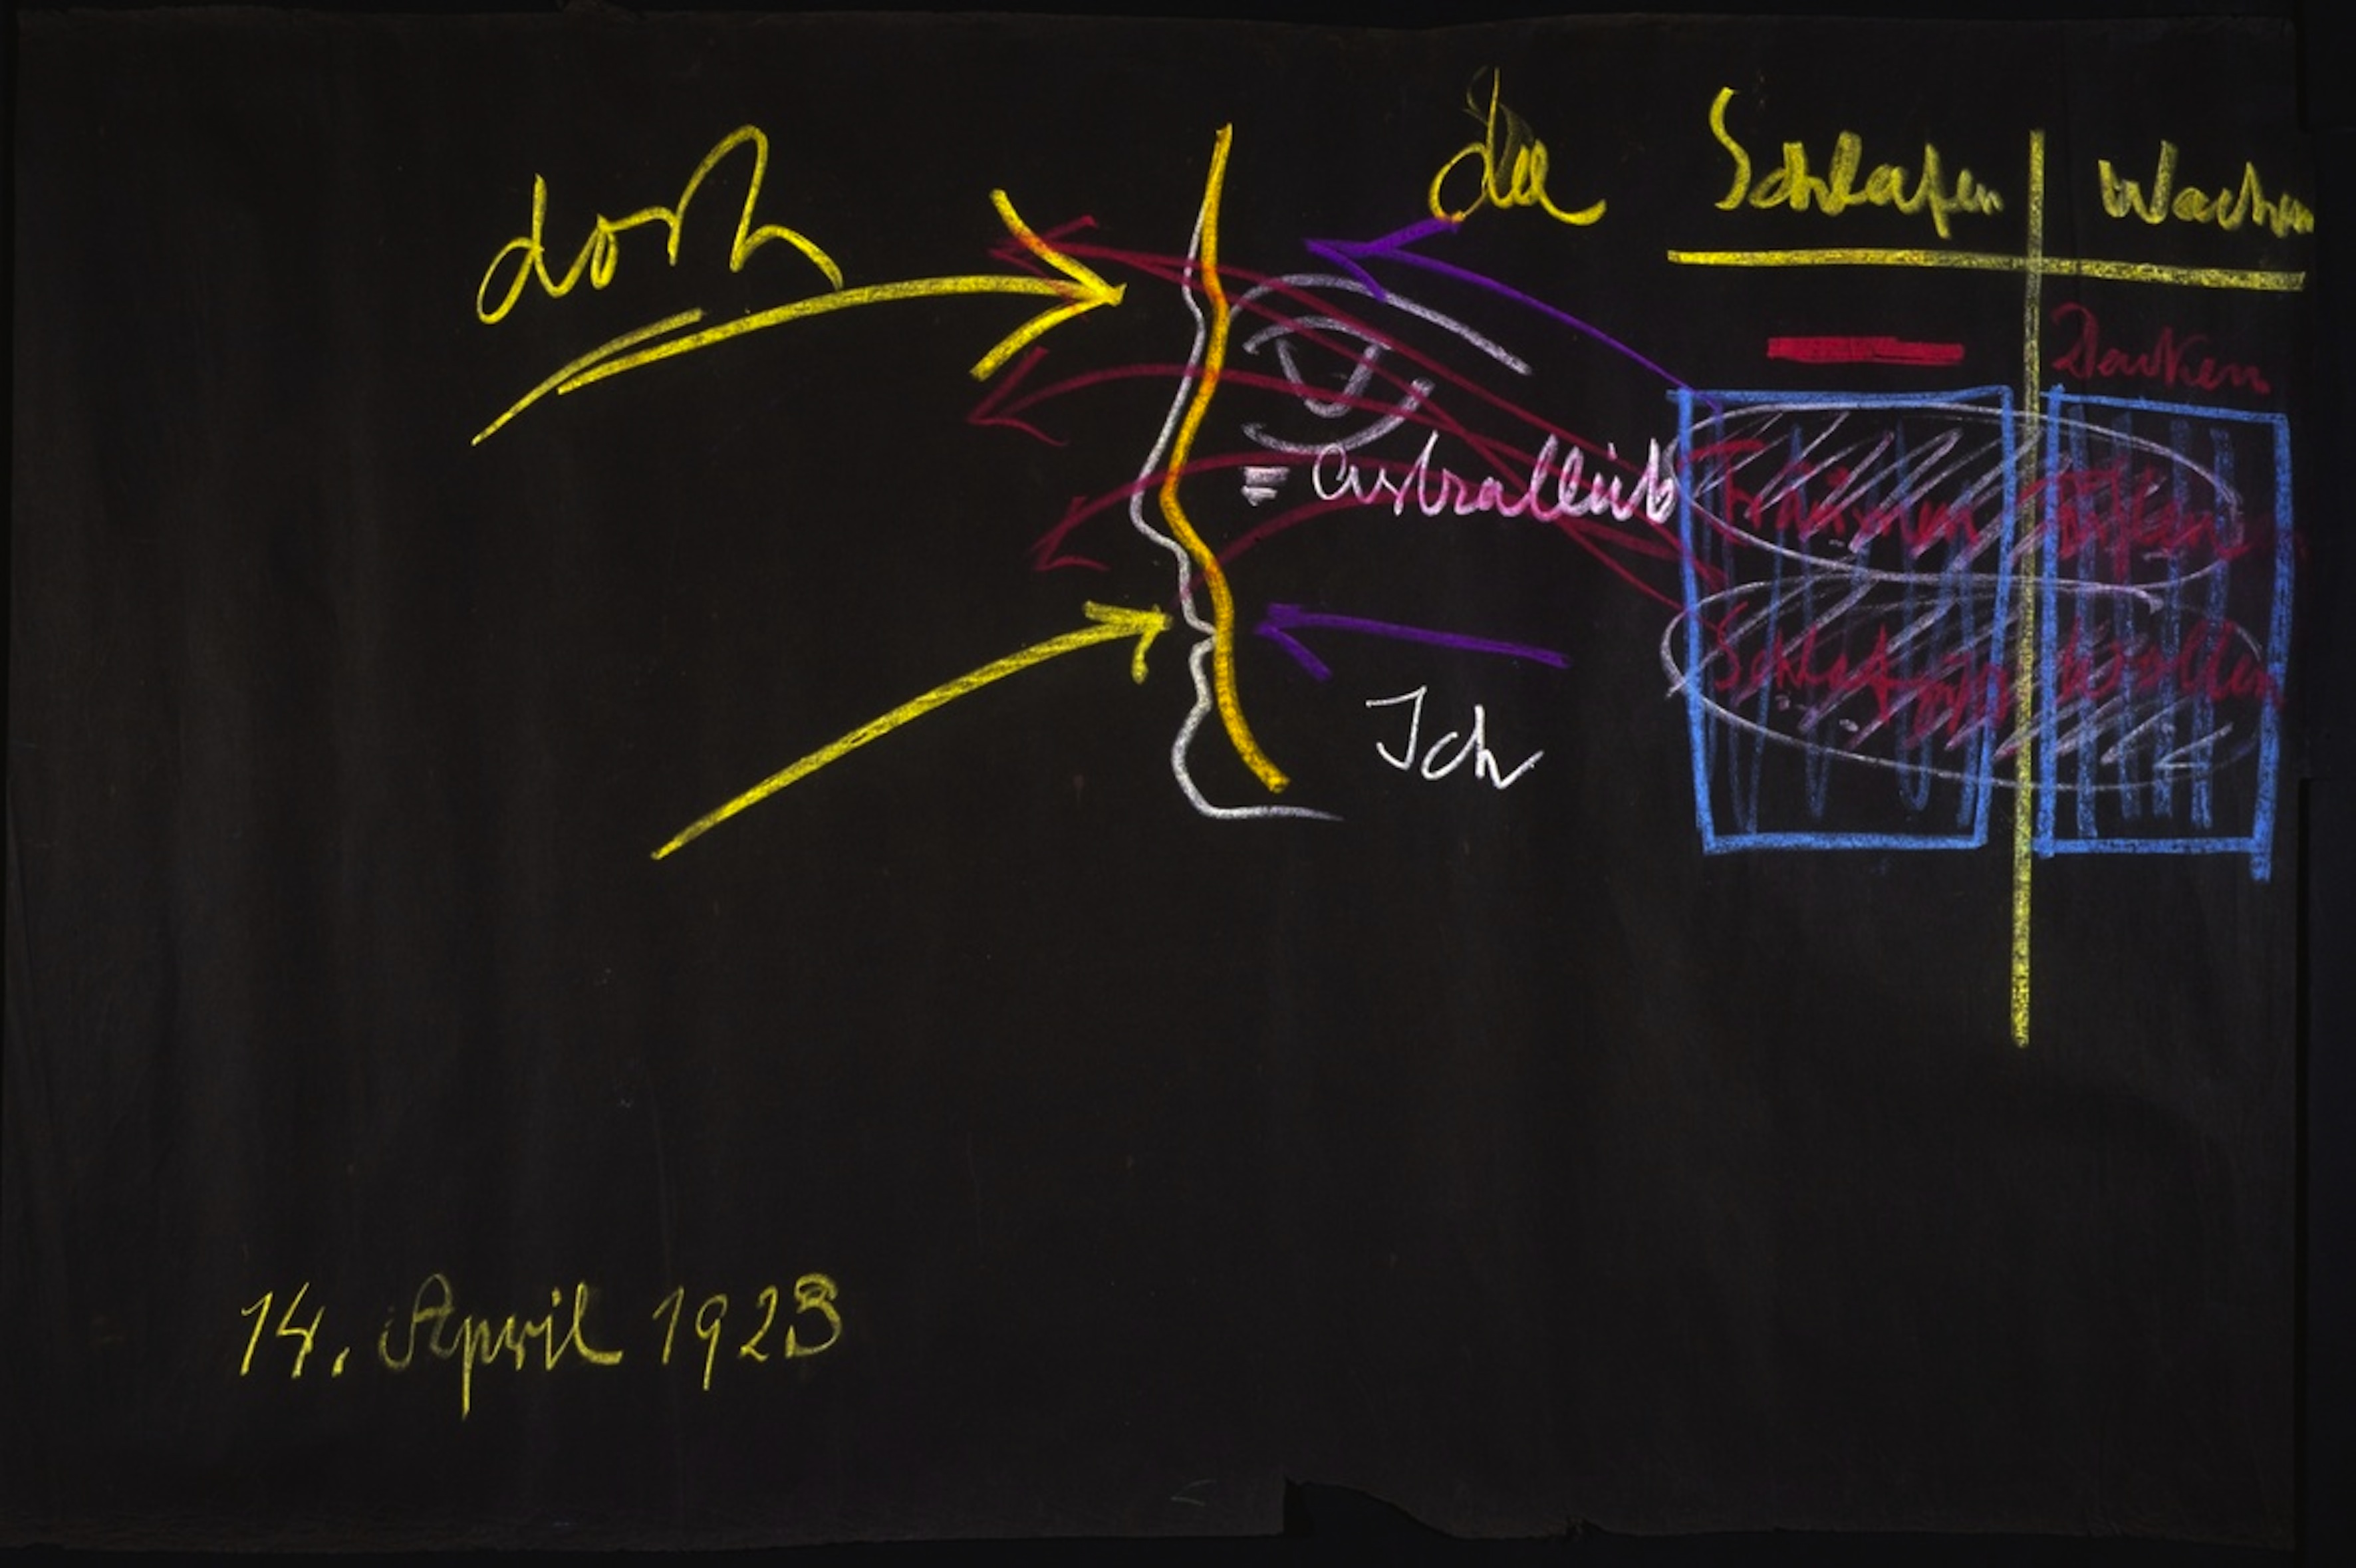 dort
da
Schlafen Wachen
Denken
Träumen Fühlen
= Astralleib
Schlaf Wollen
Ich
14. April 1923